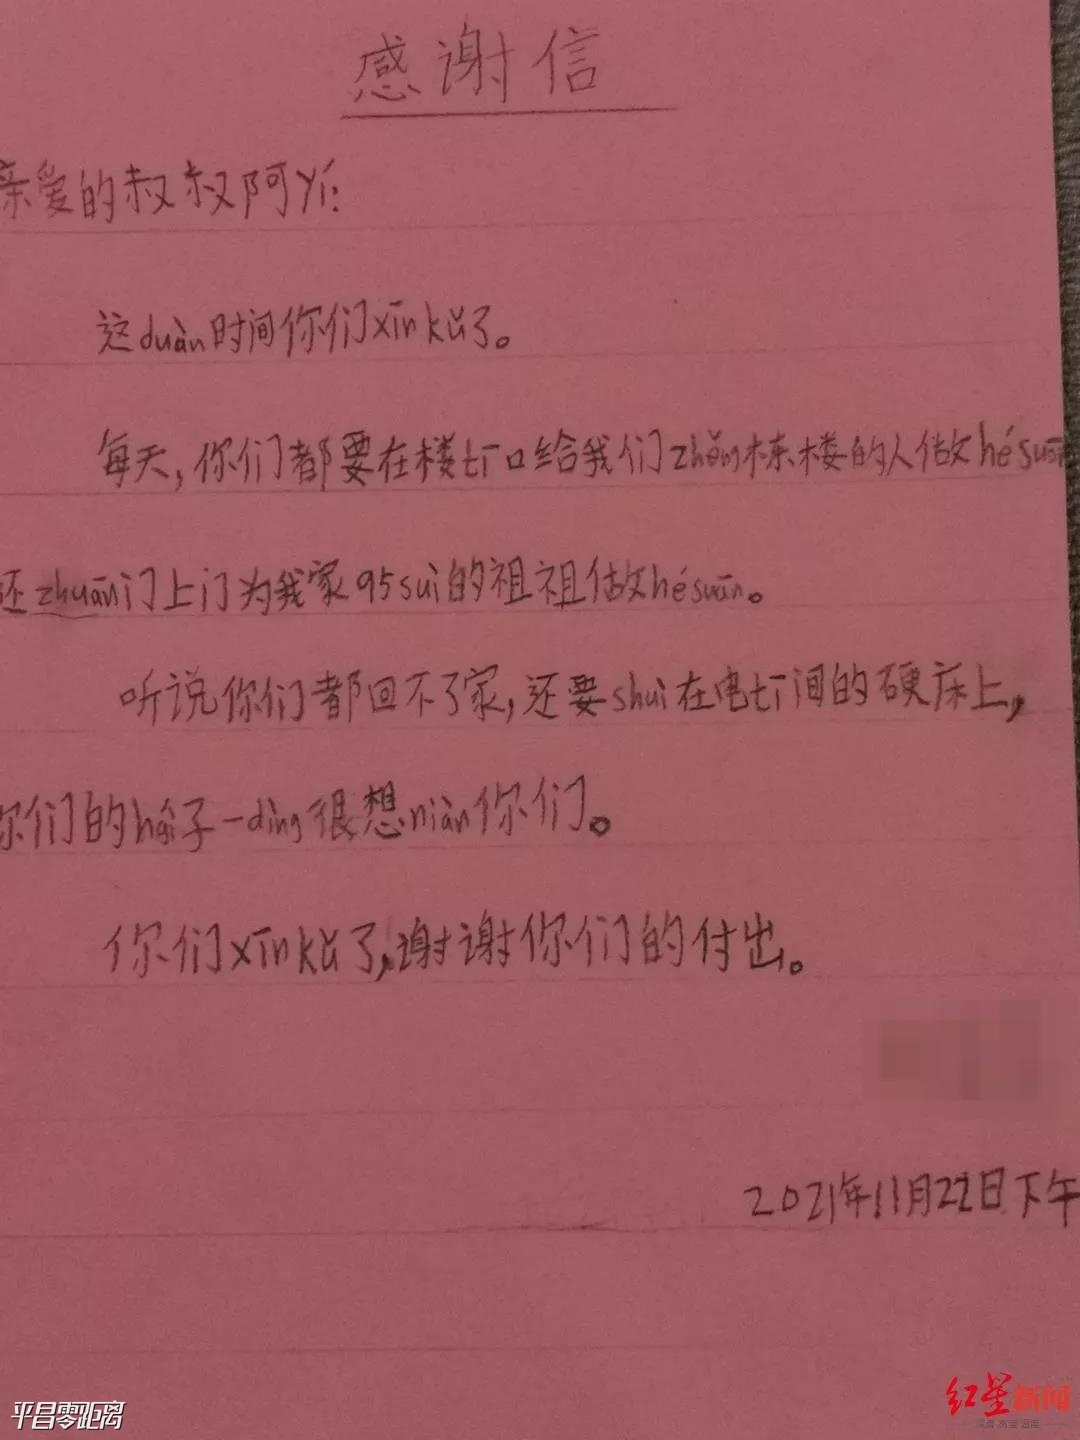 感谢信
亲爱的叔叔阿yí:
这duàn时间你们xīnkǔ了。
每天,你们都要在楼tī口给我们zhěng栋楼的人做hésuān
还zhuān门上门为我家95suì的祖祖做hésuān。
听说你们都回不了家,还要shuì在电tī间的硬床上,
你们的hái子一dìng很想niàn你们。
你们xīnkǔ了,谢谢你们的付出。
2021年11月22日下午
平昌零距离
红星新闻